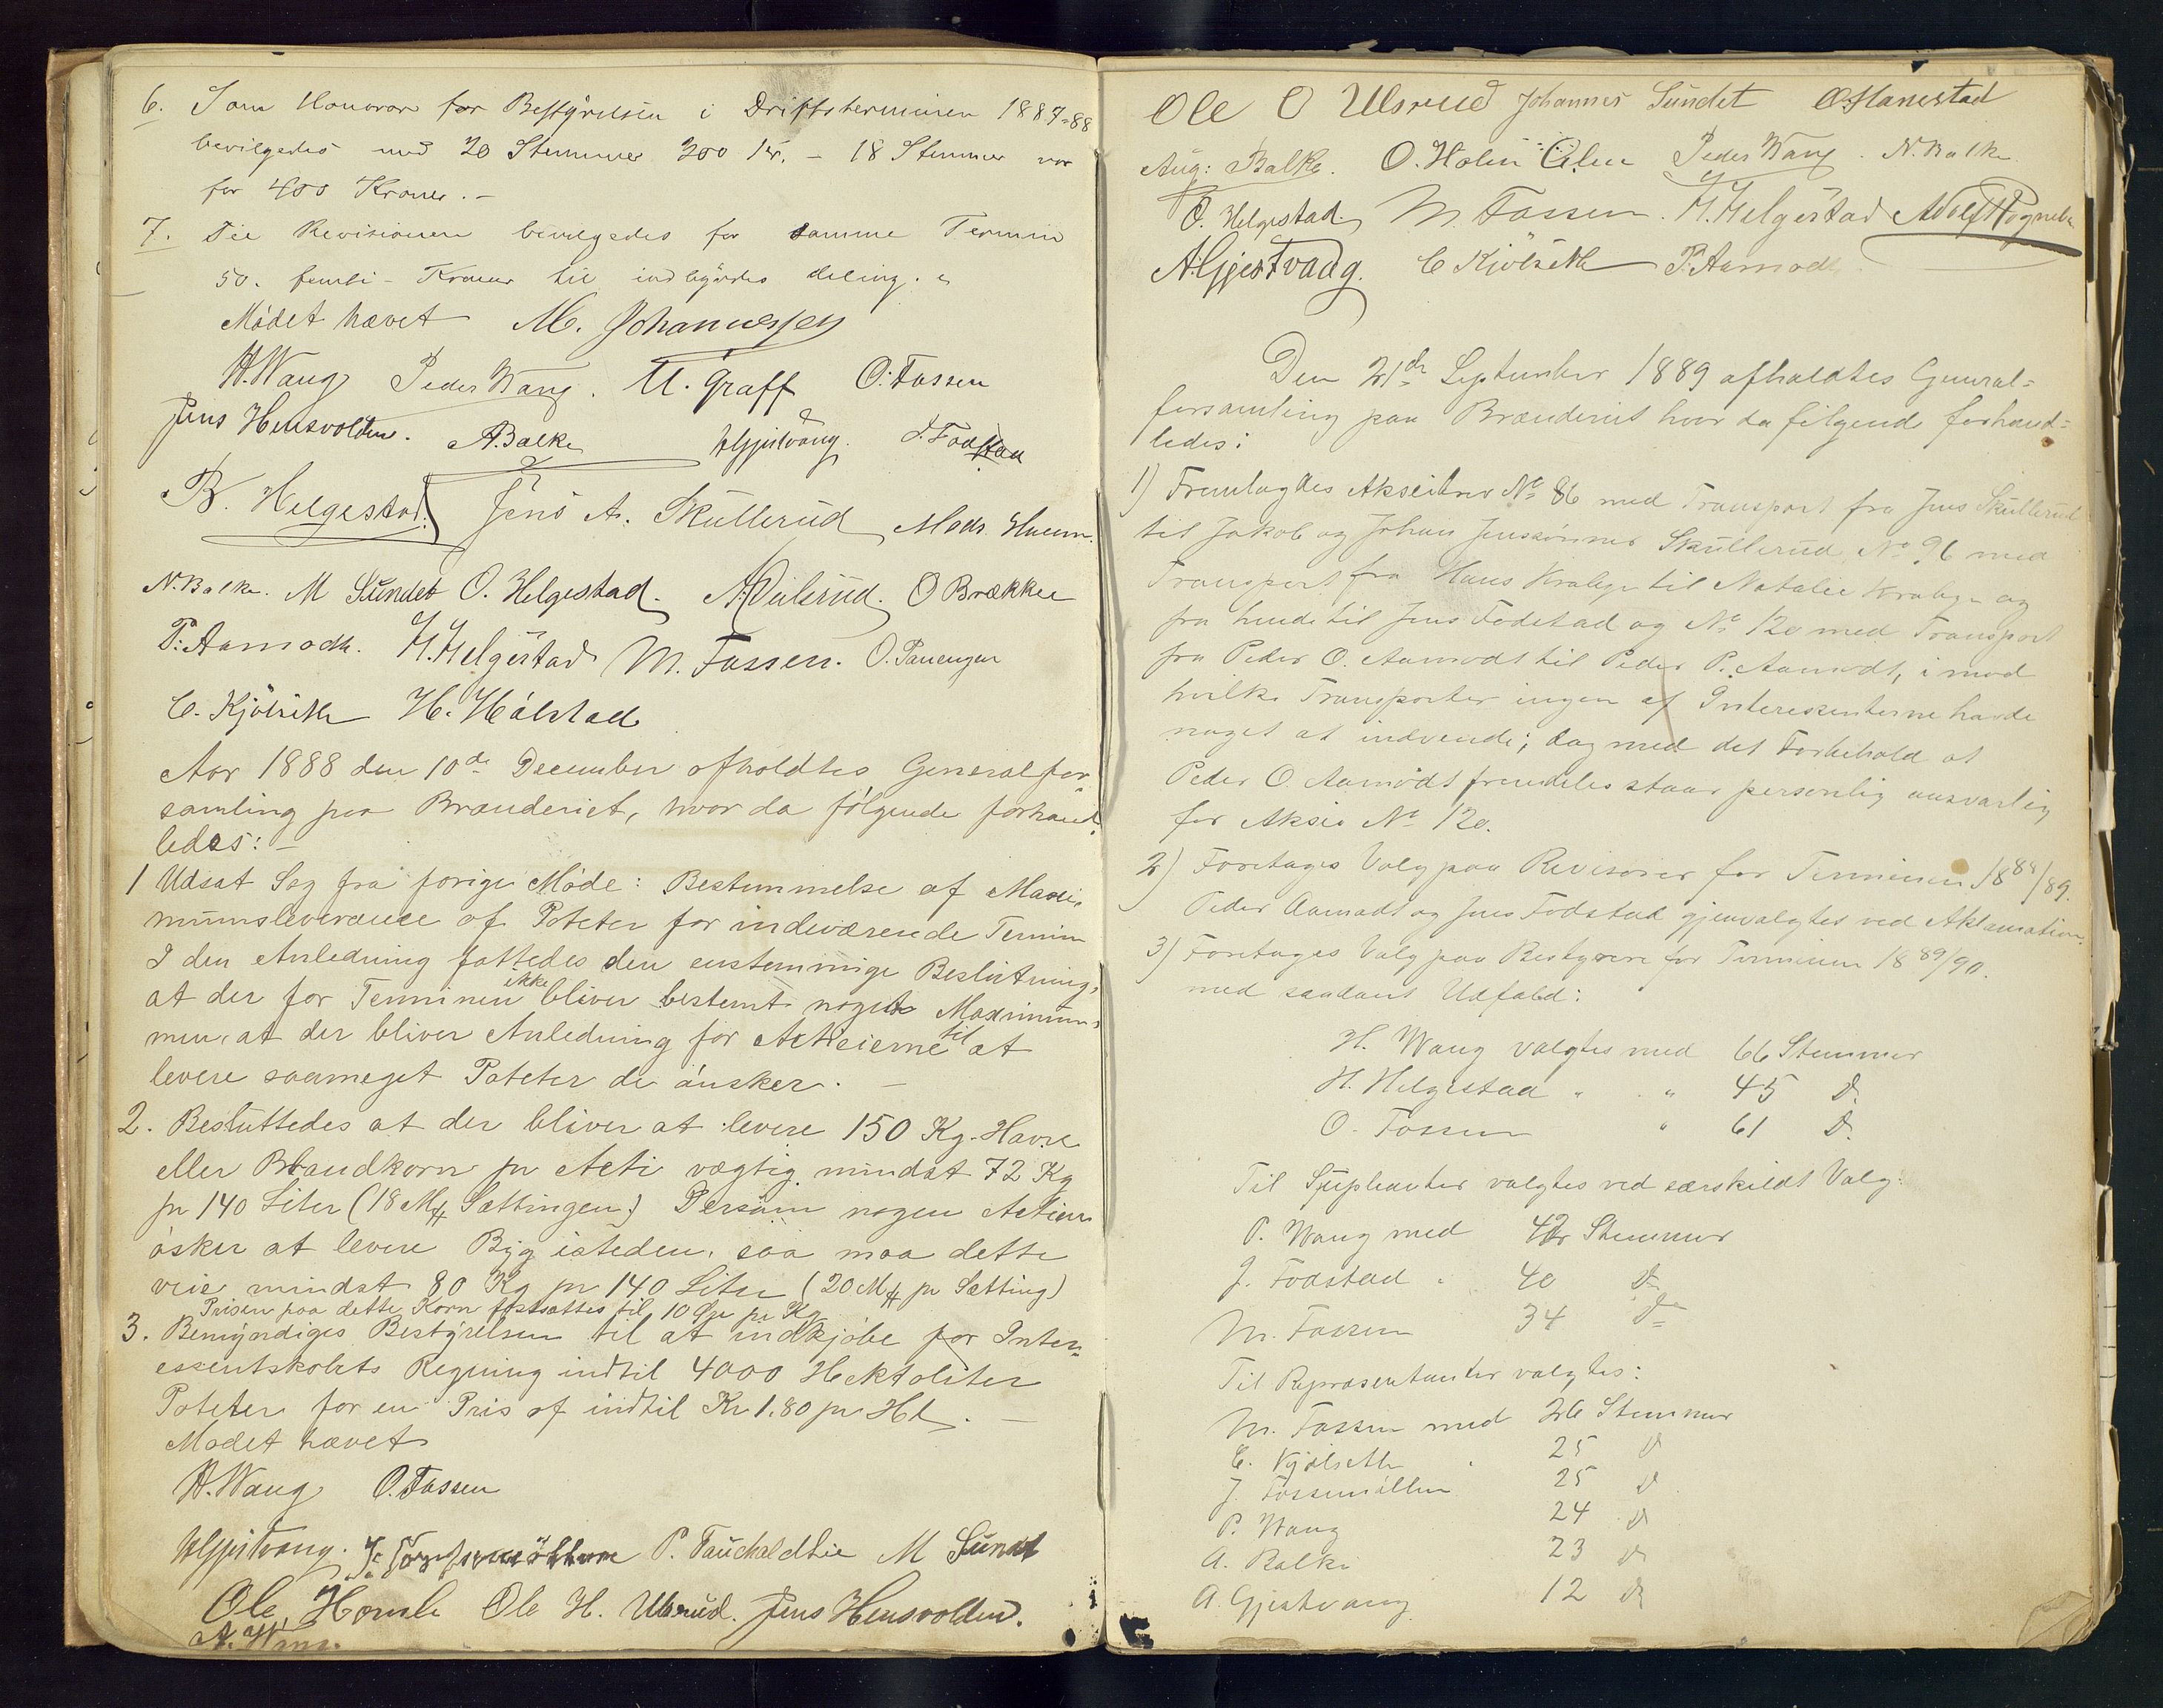 6. Som Honorar for Bestyrelsen i Driftsterminen 1887-88
bevilgedes med 20 Stemmer 300 Kr. – 18 Stemmer var
for 400 Kroner. –
7. Til Revisionen bevilgedes for samme Termin
50. femti – Kroner til indbyrdes deling.
Mödet hævet M. Johannessen
H. Wang Peder Wang. U. Graff O. Fossen
Jens Hensvolden. A. Balke AGjestvang. J. Fodstad
B. Helgestad. Jens A. Skullerud Mads
N. Balke. M Sundet O. Helgestad. O Brække
P. Aamodt. H. Helgestad M. Fossen.
C. Kjölseth H. Hólstad
Aar 1888 den 10de December afholdtes Generalfor-
samling paa Brænderiet, hvor da fólgende forhand-
ledes: –
1 Udsat Sag fra forige Móde: Bestemmelse af Maxi-
mumsleverance af Poteter for indeværende Termin
I den Anledning fattedes den enstemmige Beslutning,
at der for Terminen ikke bliver bestemt noget Maximum,
men at der bliver Anledning for Actieierne til at
levere saameget Poteter de ónsker. –
2. Besluttedes at der bliver at levere 150 Kg. Havre
eller Blandkorn pr Acti vægtig mindst 72 Kg
pr 140 Liter (18 M℔ Sættingen) Dersom nogen Actieier
ósker at levere Byg isteden, saa maa dette
veie mindst 80 Kg pr 140 Liter (20 M℔ pr Sætting)
Prisen paa dette Korn fastsattes til 10 Öre pr Kg
3. Bemyndiges Bestyrelsen til at indkjóbe for Inter-
essentskabets Regning indtil 4000 Hektoliter
Poteter for en Pris af indtil Kr 1.80 pr Hl. –
Modet hævet
H. Wang O. Fossen
AGjestvang. J. Fossemöllen P. M Sundet
Ole Homle Ole H. Ulsrud. Jens Hensvolden.
Ole O Ulsrud Johannes Sundet O Hanestad
Aug: Balke. O. Holm Peder Wang. N. Balke.
O. Helgestad M. Fossen. H. Helgestad Adolf
A. Gjestvang. C Kjölseth P. Aamodt
Den 21de September 1889 afholdtes General-
forsamling paa Brænderiet hvor da fölgende forhand-
ledes:
1) Fremlagdes Aksiebrev No 86 med Transport fra Jens Skullerud
til Jakob og Johan Jenssönner Skullerud, No 96 med
Transport fra Hans Krabye til Natalie Krabye og
fra hende til Jens Fodstad og No 120 med Transport
fra Peder O. Aamodt til Peder P. Aamodt, imod
hvilke Transporter ingen af Interessenterne havde
noget at indvende; dog med det Forbehold at
Peder O. Aamodt fremdeles staar personlig ansvarlig
for Aksie No 120.
2) Foretages Valg paa Revisorer for Terminen 1888/89.
Peder Aamodt og Jens Fodstad gjenvalgtes ved Aklamation.
3) Foretages Valg paa Bestyrere for Terminen 1889/90.
med saadant Udfald:
H. Wang valgtes med 66 Stemmer
H. Helgestad " " 45 D.
O. Fossen " 61 D.
Til Supleanter valgtes ved særskildt Valg:
P. Wang med 42 Stemmer
J. Fodstad " 40 D
M. Fossen 34 D
Til Repræsentanter valgtes:
M. Fossen med 26 Stemmer
C. Kjölseth " 25 D
J. Fossemöllen 25 D
P. Wang 24 D
A. Balke 23 D
A. Gjestvang 12 D